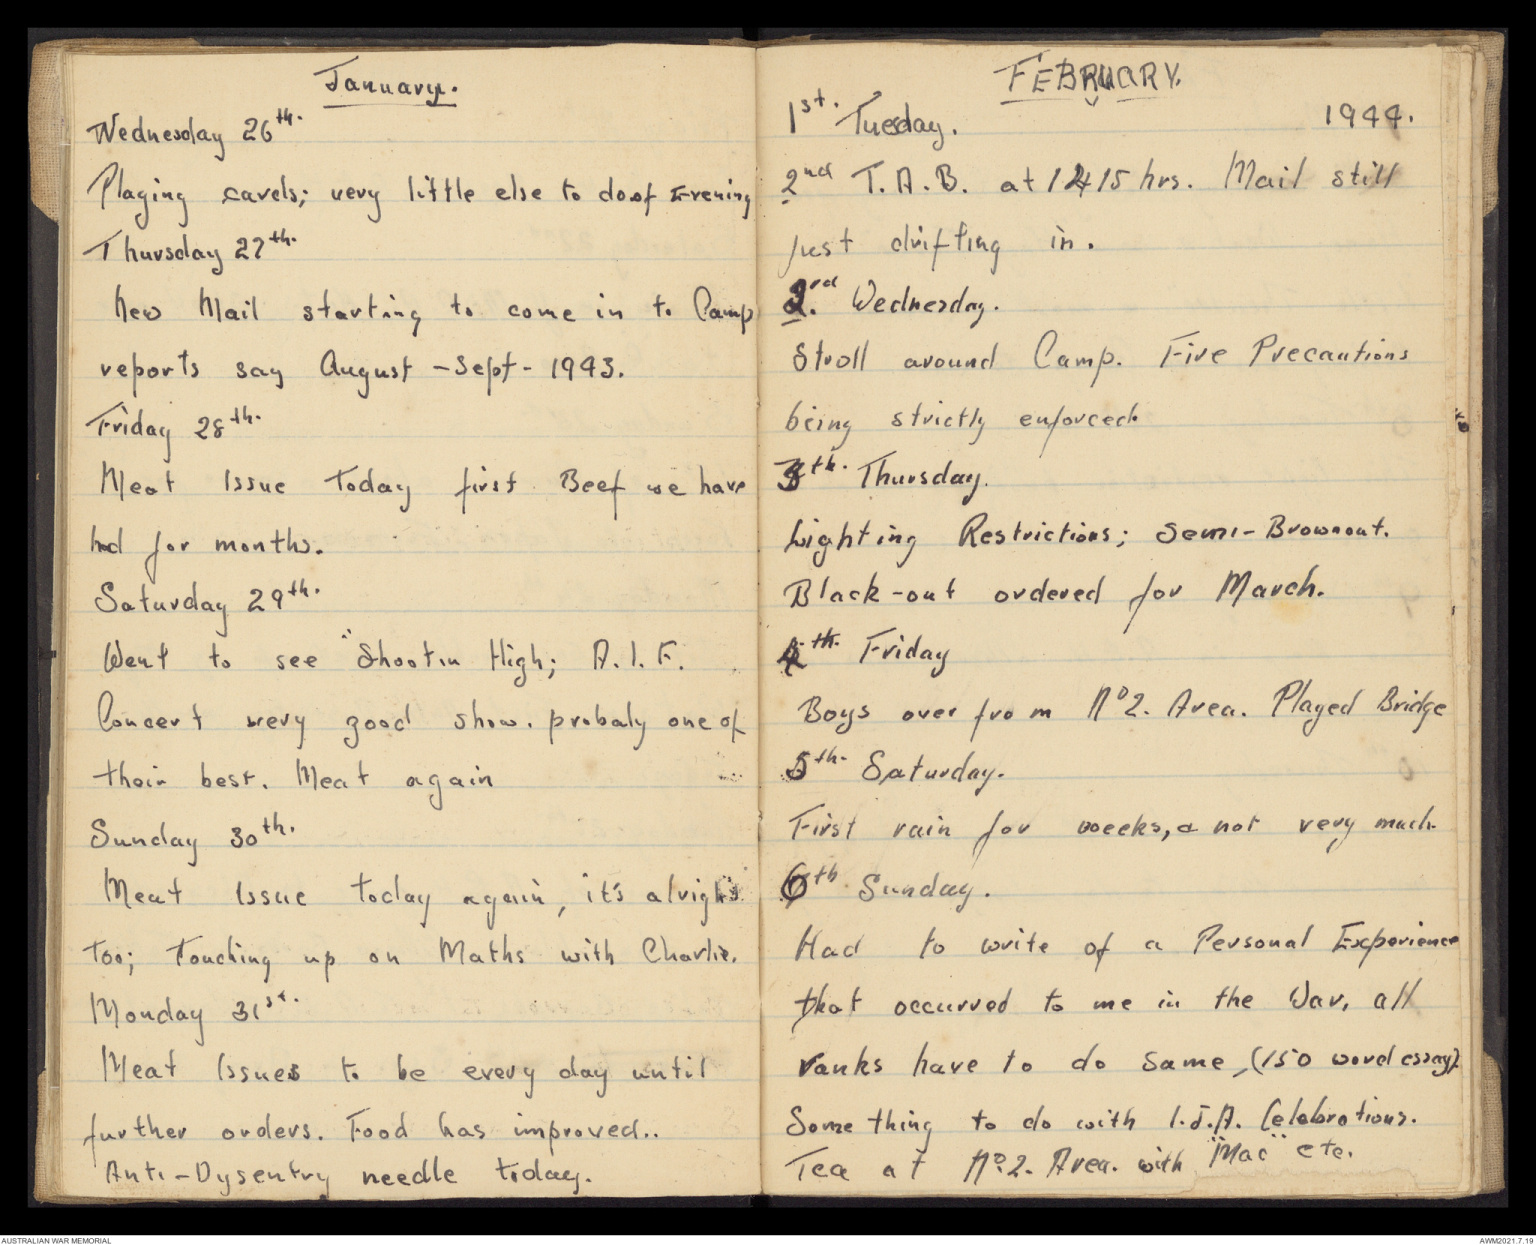 January.
Wednesday 26th.
Playing cards; very little else to do of Evening
Thursday 27th.
New Mail starting to come in to Camp
reports say August - Sept - 1943.
Friday 28th.
Meat Issue Today first Beef we have
had for months.
Saturday 29th.
Went to see "Shootin High; A.I.F.
Concert very good show. probaly one of
their best. Meat again
Sunday 30th.
Meat Issue today again, it's alright
too; Touching up on Maths with Charlie.
Monday 31st.
Meat Issues to be every day until
further orders. Food has improved..
Anti-Dysentry needle today.
FEBRUARY.
1st. Tuesday. 1944.
2nd T.A.B. at 1415 hrs. Mail still
just drifting in.
2nd. Wednesday.
Stroll around Camp. Fire Precautions
being strictly enforced.
3th. Thursday.
Lighting Restrictions; Semi-Brownout.
Black-out ordered for March.
4th. Friday
Boys over from No 2. Area. Played Bridge
5th. Saturday.
First rain for weeks, a not very much.
6th. Sunday.
Had to write of a Personal Experience
that occurred to me in the War, all
ranks have to do same, (150 word essay).
Something to do with I.J.A. Celebrations.
Tea at No 2. Area. with "Mac" etc.
AUSTRALIAN WAR MEMORIAL
AWM2021.7.19